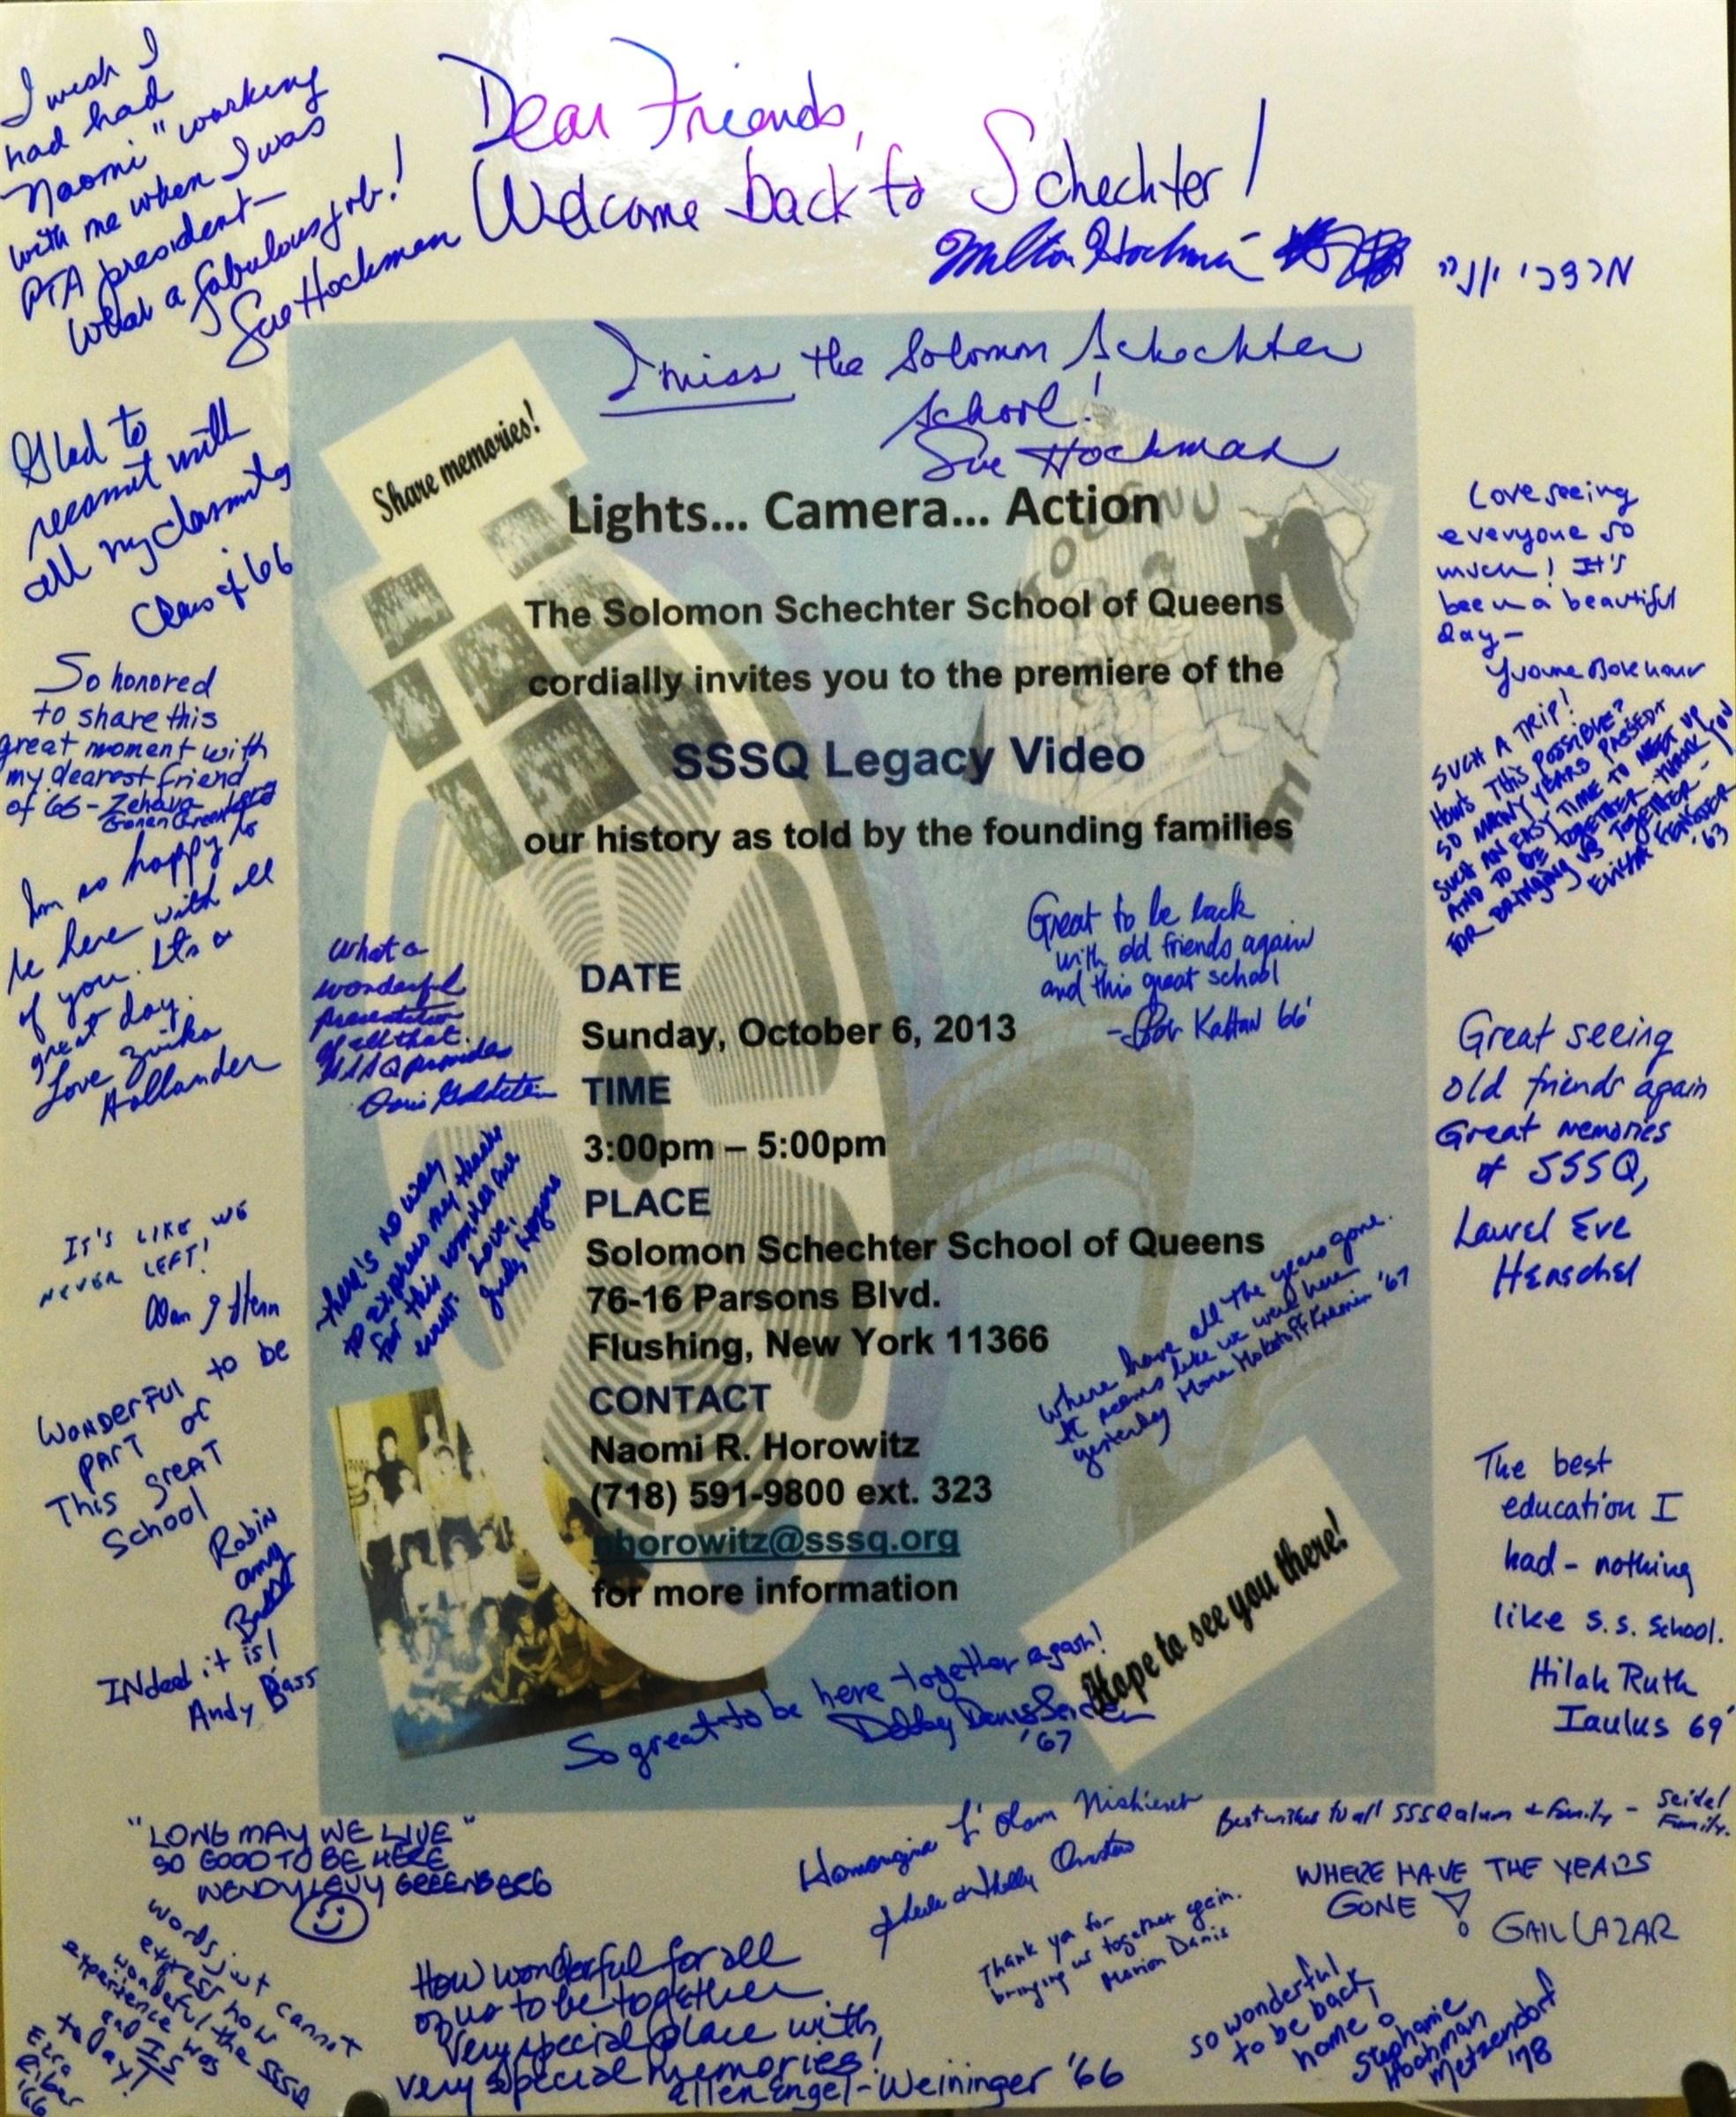 I wish I
had had
"Naomi" working
with me when I was
PTA president—
What a fabulous job!
Sue Hockman
Dear Friends,
Welcome back to Schechter!
Milton
I miss the Solomon Schechter
school!
Sue Hockman
Share memories!
Lights... Camera... Action
The Solomon Schechter School of Queens
cordially invites you to the premiere of the
SSSQ Legacy Video
our history as told by the founding families
DATE
Sunday, October 6, 2013
TIME
3:00pm – 5:00pm
PLACE
Solomon Schechter School of Queens
76-16 Parsons Blvd.
Flushing, New York 11366
CONTACT
Naomi R. Horowitz
(718) 591-9800 ext. 323
nhorowitz@sssq.org
for more information
Hope to see you there!
Glad to
reconnect with
all my classmates
Class of '66
So honored
to share this
great moment with
my dearest friend
of '66 - Zehava
I'm so happy to
be here with all
of you. It's a
great day.
Love Zvika
Hollander
What a
wonderful
presentation
of all that
SSSQ provides
Doris Goldstein
there's no way
to express my thanks
for this wonderful
event. Love,
Judy
IT'S LIKE WE
NEVER LEFT!
WONDERFUL to be
PART OF
THIS GREAT
School
Robin
amy
Indeed it is!
Andy Bass
Great to be back
with old friends again
and this great school
- Kattan 66'
Where have all the years gone.
It seems like we were here
yesterday Mona Mokotoff Kremin '67
So great to be here together again!
Debby Danis
'67
Love seeing
everyone so
much! It's
been a beautiful
day –
Yvonne Bokhour
SUCH A TRIP!
HOW'S THIS POSSIBLE?
SO MANY YEARS PASSED &
SUCH AN EASY TIME TO MEET UP
AND TO BE TOGETHER - THANK YOU
FOR BRINGING US TOGETHER -
'63
Great seeing
old friends again
Great memories
of SSSQ,
Laurel Eve
Henschel
The best
education I
had – nothing
like S.S. School.
Hilah Ruth
Iaulus 69'
"LONG MAY WE LIVE"
SO GOOD TO BE HERE
WENDY LEVY GREENBERG
Words just cannot
express how
wonderful the SSSQ
experience was
and IS
today!
Ezra
'66
How wonderful for all
of us to be together
Very special place with
very special memories!
Ellen Engel-Weininger '66
L'olam
Thank ya for
bringing us together again.
Marion Danis
Best wishes to all SSSQ alum & family – Seidel
Family.
WHERE HAVE THE YEARS
GONE?!
GAIL LAZAR
So wonderful
to be back
home!
Stephanie
Hochman
Metzendorf
'78